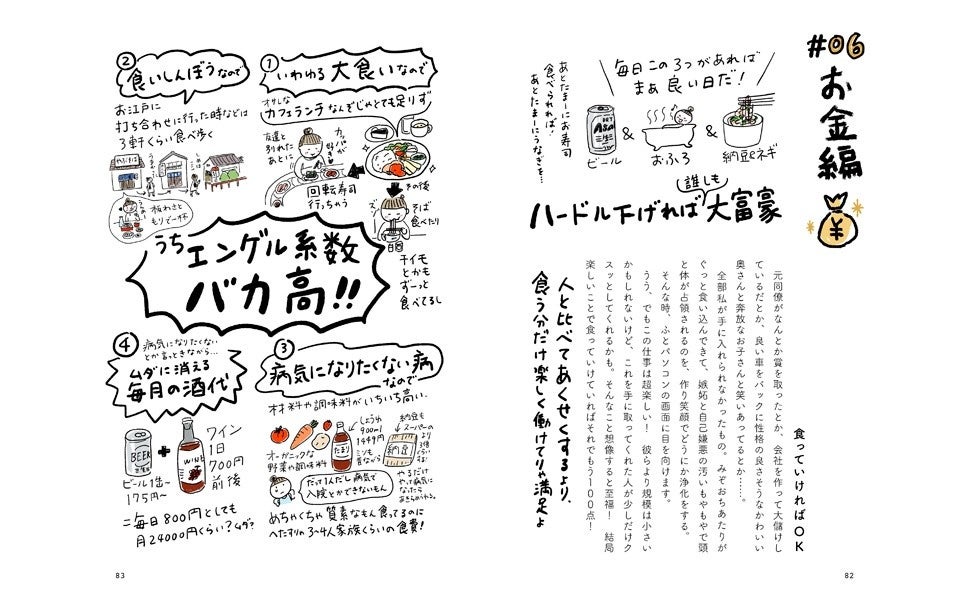 #06
お金編
毎日この3つがあれば
まぁ良い日だ!
ビール
&
おふろ
&
納豆&ネギ
あとたまーにお寿司
食べられれば!
あとたまーにうなぎを…
誰しも
ハードル下げれば大富豪
食っていければOK
元同僚がなんとか賞を取ったとか、会社を作って大儲けし
ているだとか、良い車をバックに性格の良さそうなかわいい
奥さんと奔放なお子さんと笑いあってるとか……。
全部私が手に入れられなかったもの。みぞおちあたりが
ぐっと食い込んできて、嫉妬と自己嫌悪の汚いもやもやで頭
と体が占領されるのを、作り笑顔でどうにか浄化をする。
そんな時、ふとパソコンの画面に目を向けます。
うう、でもこの仕事は超楽しい! 彼らより規模は小さい
かもしれないけど、これを手に取ってくれた人が少しだけク
スッとしてくれるかも。そんなこと想像すると至福! 結局
楽しいことで食っていけていればそれでもう100点!
人と比べてあくせくするより、
食う分だけ楽しく働けてりゃ満足よ
82
①
いわゆる大食いなので
オサレな
カフェランチなんぞじゃとても足りず
友達と
別れた
あとに
回転寿司
行っちゃう
その後
そば
食べたり
干イモ
とかも
ずーっと
食べてるし
②
食いしんぼうなので
お江戸に
打ち合わせに行った時などは
3軒くらい食べ歩く
板わさと
もりで一杯
うち
エンゲル系数
バカ高!!
③
病気になりたくない病
なので
材料や調味料がいちいち高い。
オーガニックな
野菜や調味料
たまり
しょうゆ
900ml
1449円
ミソも
昔ながら
納豆も
スーパーの
より
3倍
くらい
する!
納豆
だけ1人だし病気で
入院とかできないもん
やるだけ
やって病気に
なったら
あきらめつくし
めちゃくちゃ質素なもん食ってるのに
へたすりゃ3〜4人家族くらいの食費!
④
病気になりたくない
とか言っときながら…
ムダに消える
毎月の酒代
BEER
+
WINE
ワイン
1日
700円
前後
ビール1缶〜
175円〜
=毎日800円としても
月24000円くらい?ムダ?
83